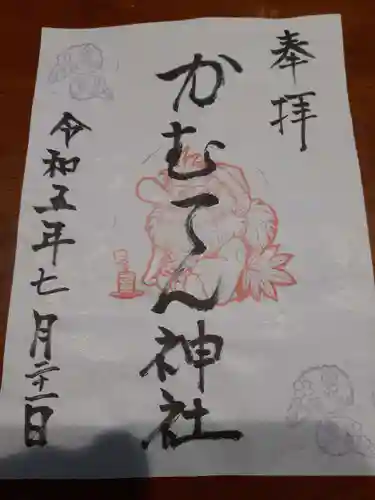 奉拝
かむてん神社
令和五年七月二十一日